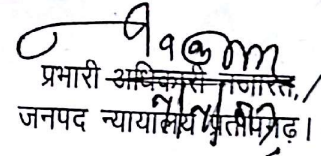 प्रभारी अधिकारी नजारत,
जनपद न्यायालय प्रतापगढ़।